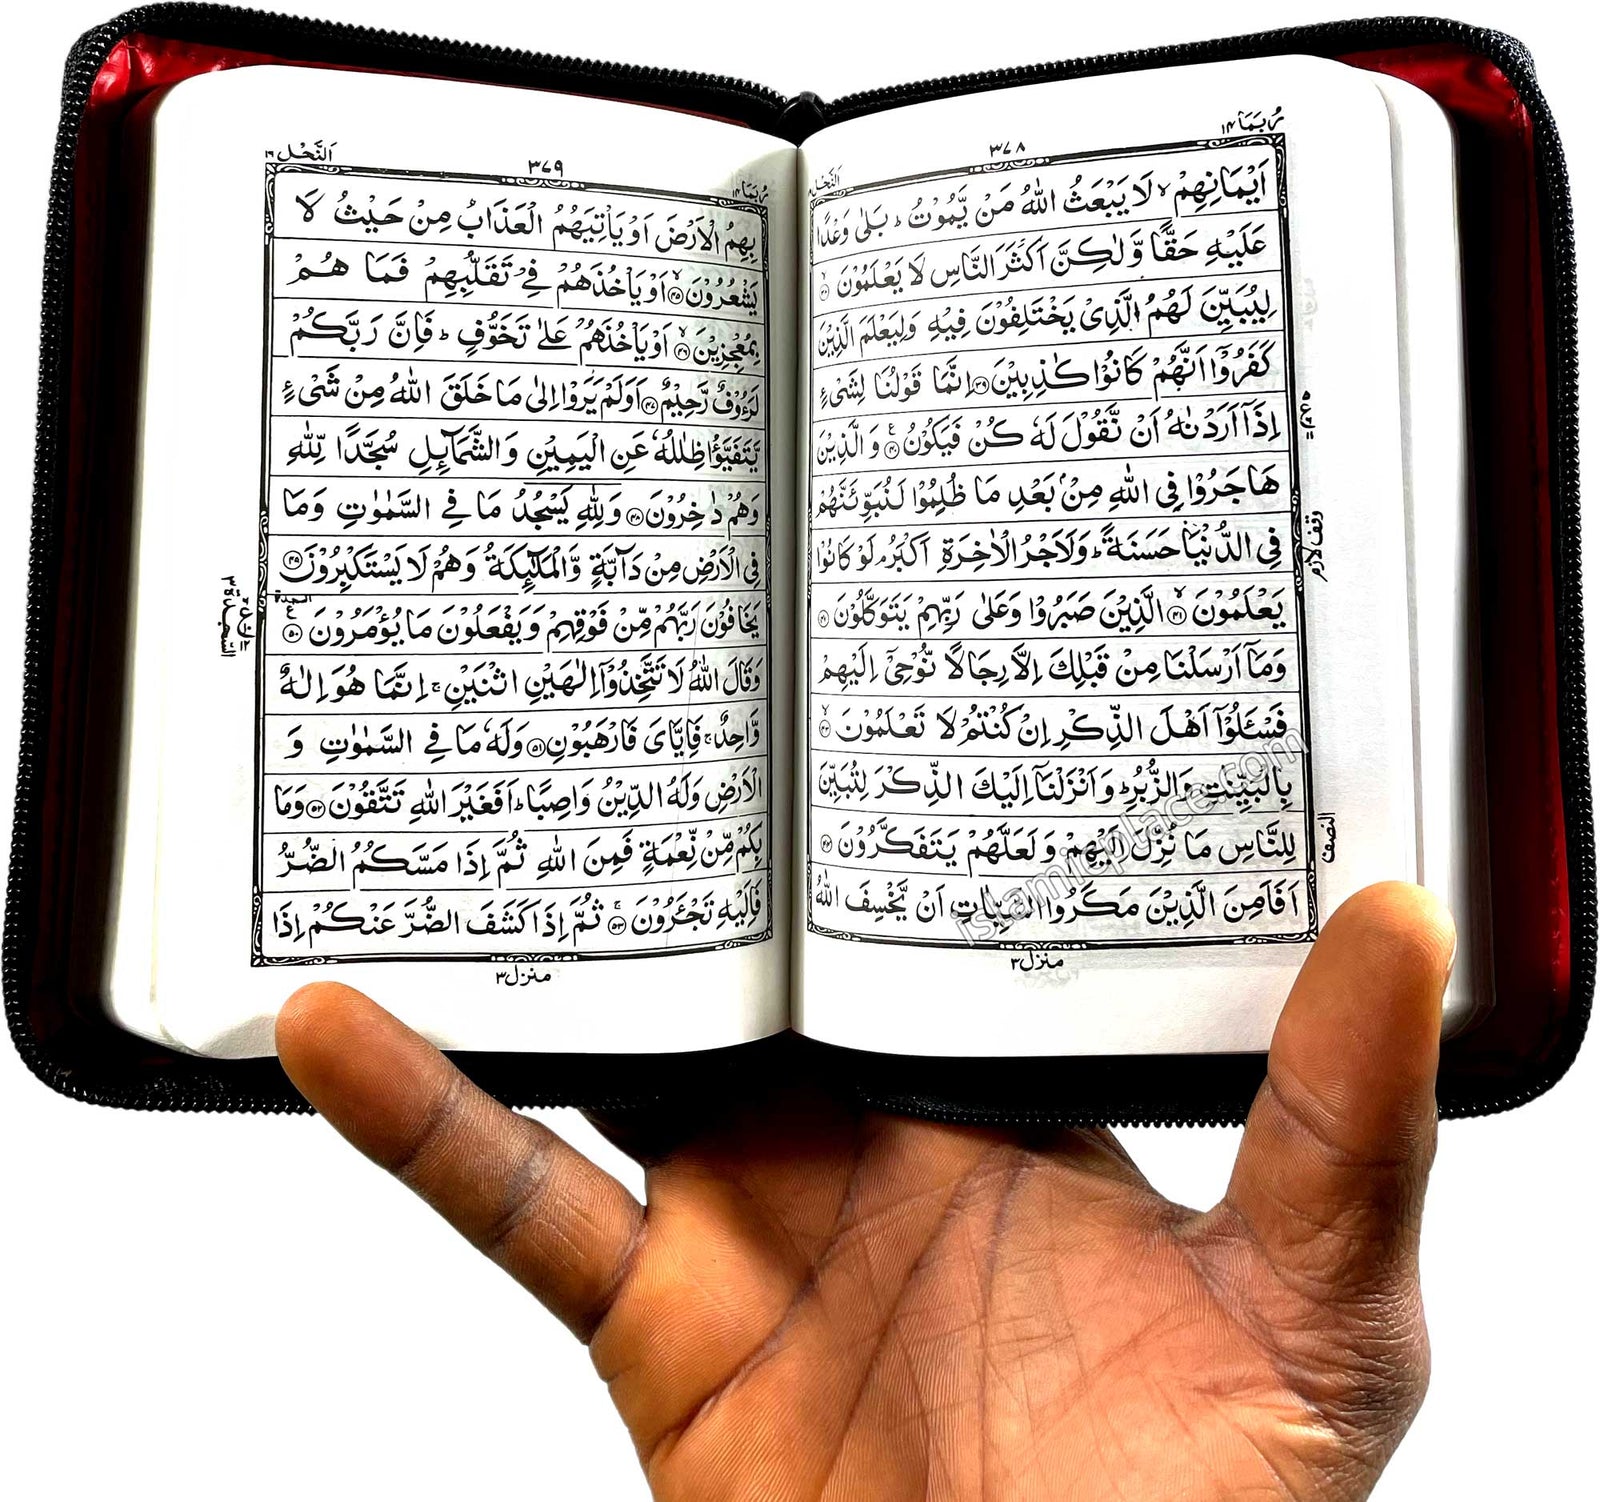 ربما ١٤
٣٧٨
النحل
اَيْمَانِهِمْ ۙ لَا يَبْعَثُ اللّٰهُ مَنْ يَّمُوْتُ ؕ بَلٰى وَعْدًا
عَلَيْهِ حَقًّا وَّلٰكِنَّ اَكْثَرَ النَّاسِ لَا يَعْلَمُوْنَ ۙ
لِيُبَيِّنَ لَهُمُ الَّذِىْ يَخْتَلِفُوْنَ فِيْهِ وَلِيَعْلَمَ الَّذِيْنَ
كَفَرُوْۤا اَنَّهُمْ كَانُوْا كٰذِبِيْنَ ۞٣٩ اِنَّمَا قَوْلُنَا لِشَىْءٍ
اِذَاۤ اَرَدْنٰهُ اَنْ نَّقُوْلَ لَهٗ كُنْ فَيَكُوْنُ ۞٤٠ وَالَّذِيْنَ
هَاجَرُوْا فِى اللّٰهِ مِنْۢ بَعْدِ مَا ظُلِمُوْا لَنُبَوِّئَنَّهُمْ
فِى الدُّنْيَا حَسَنَةً ؕ وَلَاَجْرُ الْاٰخِرَةِ اَكْبَرُ ۘ لَوْ كَانُوْا
يَعْلَمُوْنَ ۞٤١ الَّذِيْنَ صَبَرُوْا وَعَلٰى رَبِّهِمْ يَتَوَكَّلُوْنَ ۞
وَمَاۤ اَرْسَلْنَا مِنْ قَبْلِكَ اِلَّا رِجَالًا نُّوْحِىْۤ اِلَيْهِمْ
فَسْـَٔلُوْۤا اَهْلَ الذِّكْرِ اِنْ كُنْتُمْ لَا تَعْلَمُوْنَ ۞
بِالْبَيِّنٰتِ وَالزُّبُرِ ؕ وَاَنْزَلْنَاۤ اِلَيْكَ الذِّكْرَ لِتُبَيِّنَ
لِلنَّاسِ مَا نُزِّلَ اِلَيْهِمْ وَلَعَلَّهُمْ يَتَفَكَّرُوْنَ ۞
اَفَاَمِنَ الَّذِيْنَ مَكَرُوا السَّيِّاٰتِ اَنْ يَّخْسِفَ اللّٰهُ
وقف لازم
النصف
منزل ٣
islamicplace.com
ربما ١٤
٣٧٩
النحل ١٦
بِهِمُ الْاَرْضَ اَوْ يَاْتِيَهُمُ الْعَذَابُ مِنْ حَيْثُ لَا
يَشْعُرُوْنَ ۞٤٥ اَوْ يَاْخُذَهُمْ فِىْ تَقَلُّبِهِمْ فَمَا هُمْ
بِمُعْجِزِيْنَ ۞٤٦ اَوْ يَاْخُذَهُمْ عَلٰى تَخَوُّفٍ ؕ فَاِنَّ رَبَّكُمْ
لَرَءُوْفٌ رَّحِيْمٌ ۞٤٧ اَوَلَمْ يَرَوْا اِلٰى مَا خَلَقَ اللّٰهُ مِنْ شَىْءٍ
يَّتَفَيَّؤُا ظِلٰلُهٗ عَنِ الْيَمِيْنِ وَالشَّمَآئِلِ سُجَّدًا لِّلّٰهِ
وَهُمْ دٰخِرُوْنَ ۞٤٨ وَلِلّٰهِ يَسْجُدُ مَا فِى السَّمٰوٰتِ وَمَا
فِى الْاَرْضِ مِنْ دَآبَّةٍ وَّالْمَلٰٓئِكَةُ وَهُمْ لَا يَسْتَكْبِرُوْنَ ۞٤٩
يَخَافُوْنَ رَبَّهُمْ مِّنْ فَوْقِهِمْ وَيَفْعَلُوْنَ مَا يُؤْمَرُوْنَ ۞٥٠
وَقَالَ اللّٰهُ لَا تَتَّخِذُوْۤا اِلٰهَيْنِ اثْنَيْنِ ۚ اِنَّمَا هُوَ اِلٰهٌ
وَّاحِدٌ ۚ فَاِيَّاىَ فَارْهَبُوْنِ ۞٥١ وَلَهٗ مَا فِى السَّمٰوٰتِ وَ
الْاَرْضِ وَلَهُ الدِّيْنُ وَاصِبًا ؕ اَفَغَيْرَ اللّٰهِ تَتَّقُوْنَ ۞٥٢ وَمَا
بِكُمْ مِّنْ نِّعْمَةٍ فَمِنَ اللّٰهِ ثُمَّ اِذَا مَسَّكُمُ الضُّرُّ
فَاِلَيْهِ تَجْـَٔرُوْنَ ۞٥٣ ثُمَّ اِذَا كَشَفَ الضُّرَّ عَنْكُمْ اِذَا
السجدة
السجدة ٣
منزل ٣